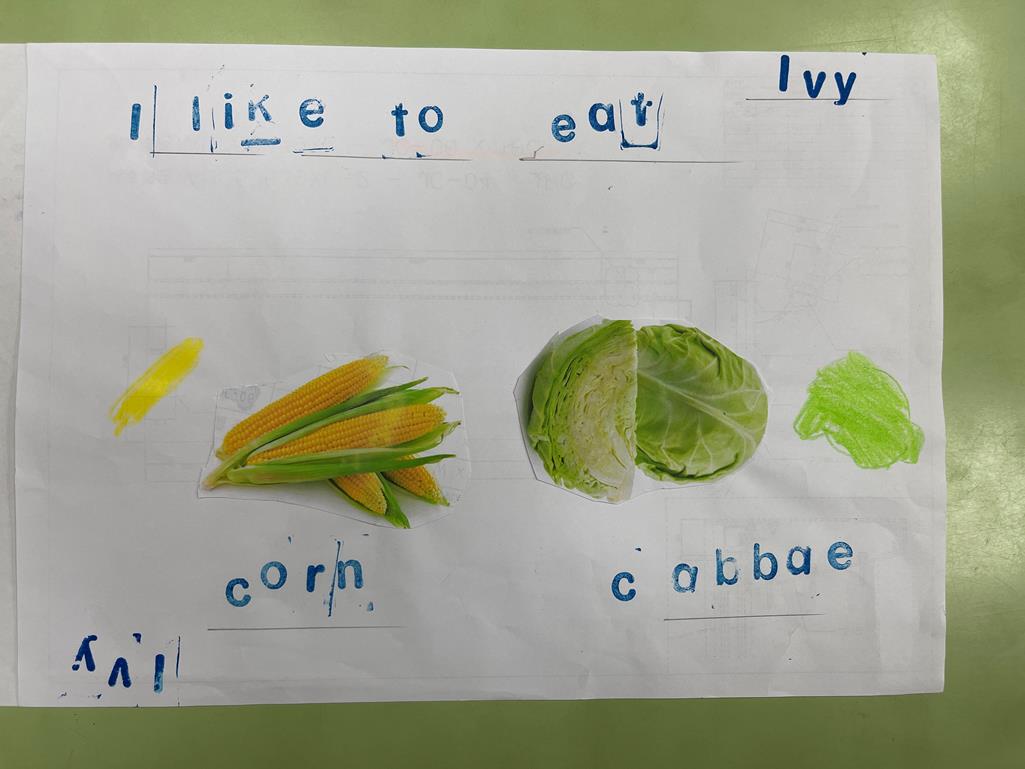 I like to eat
Ivy
corn
cabbae
Ivy